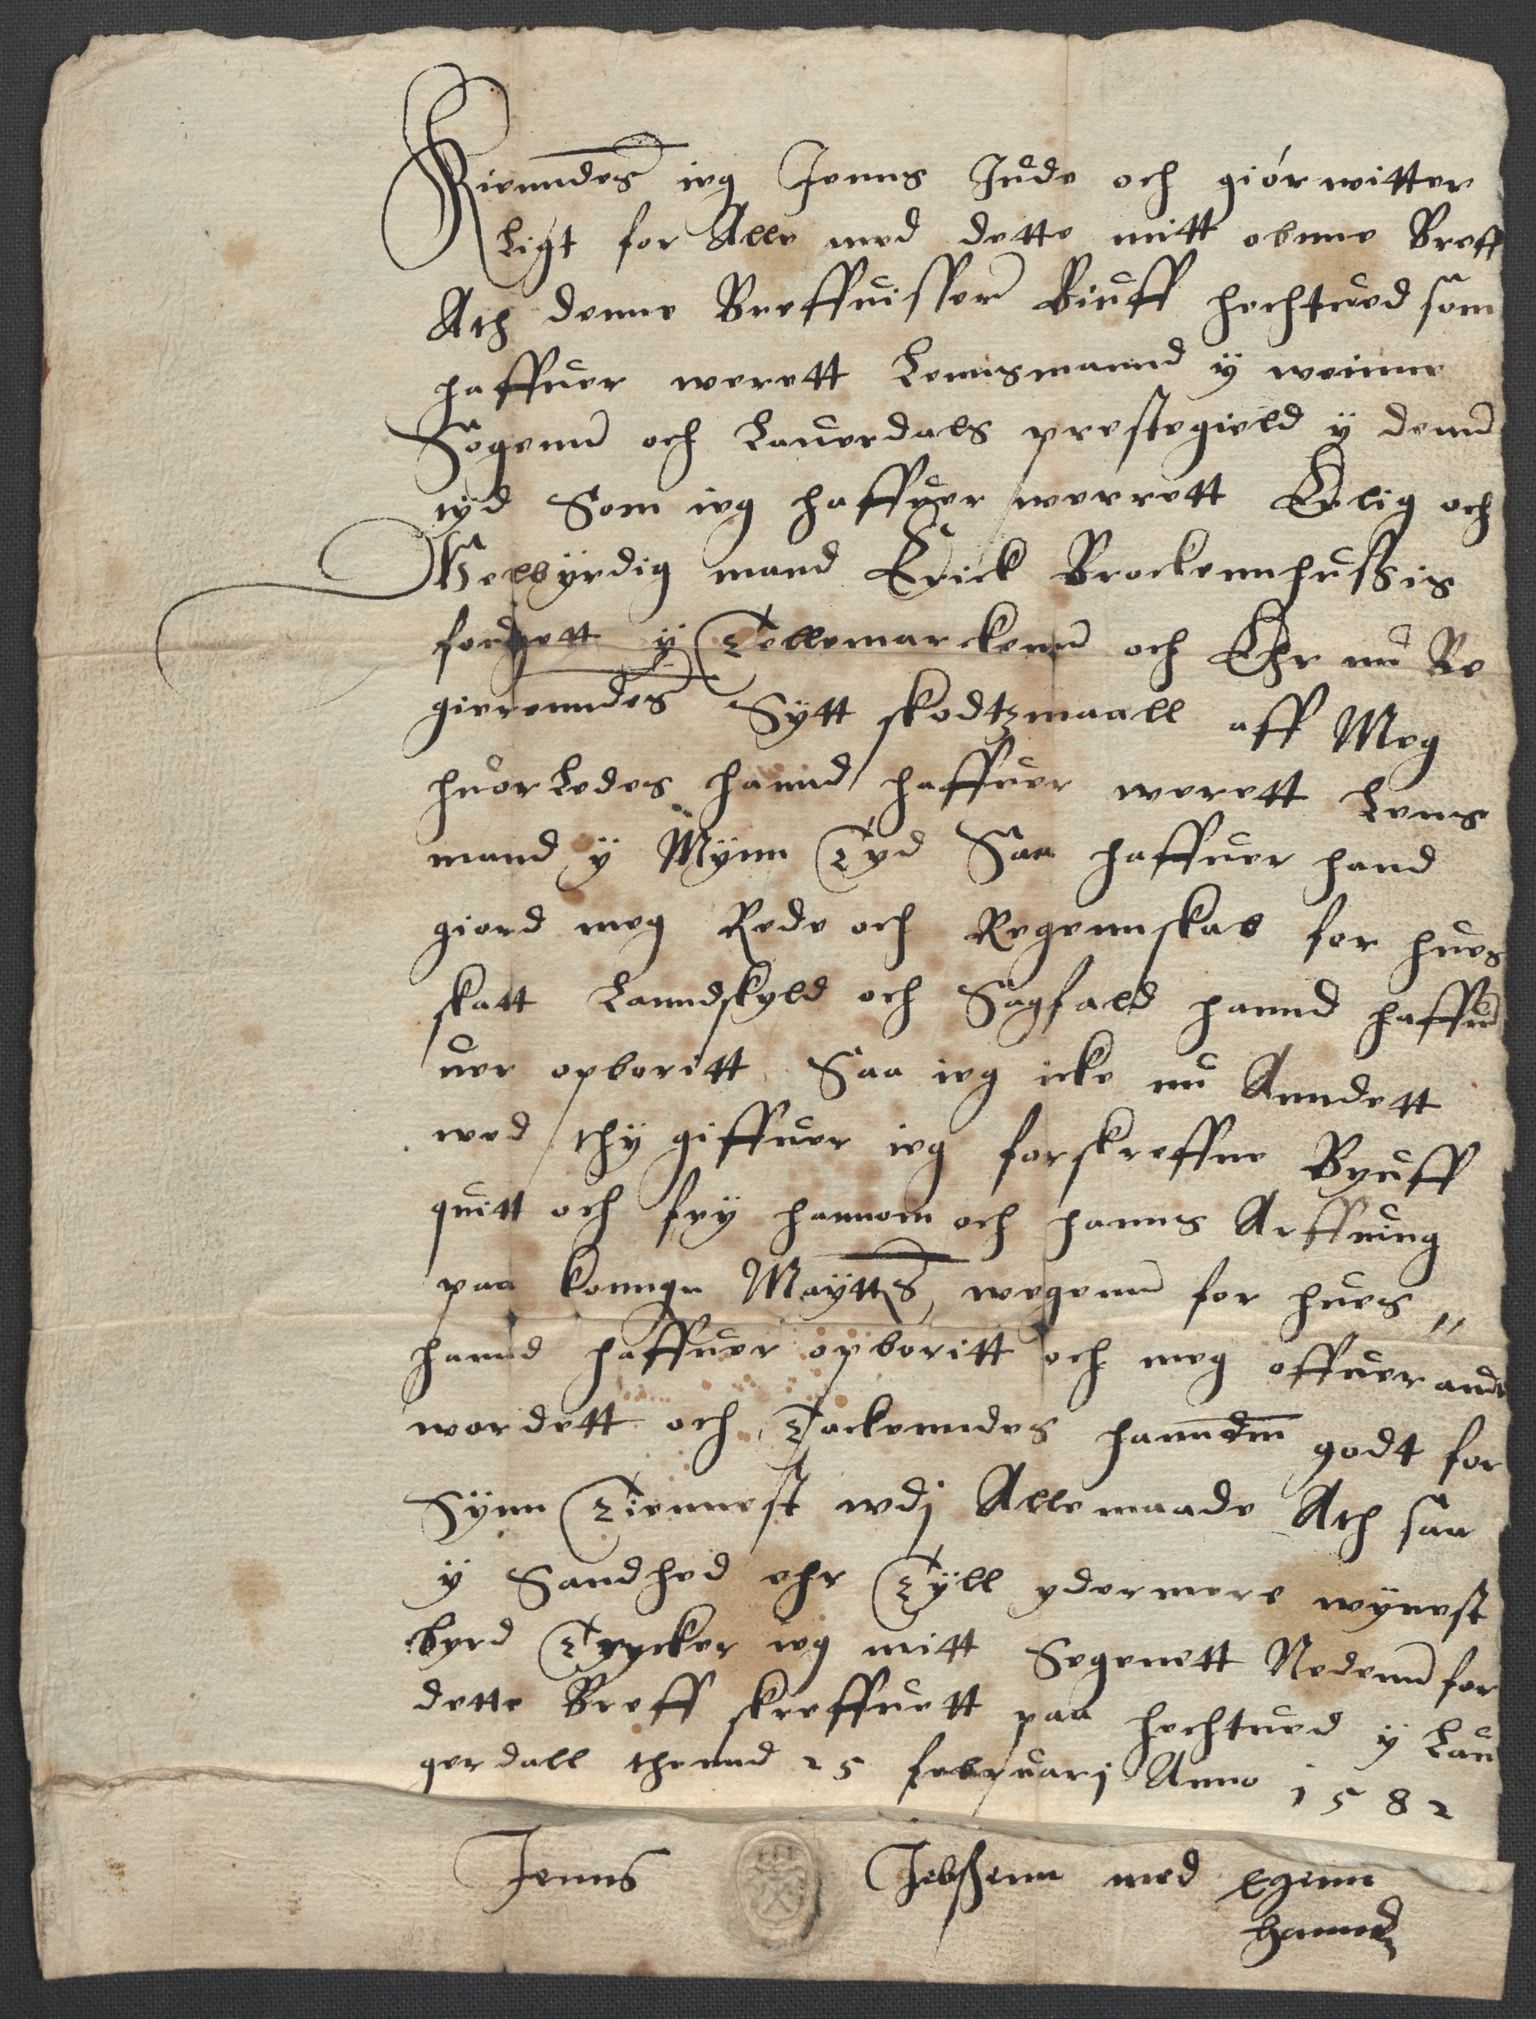 Kienndes ieg Jenns Jude och giór witter
ligt for Alle med dette mitt obnne Breff
Ath denne Breffuisser Biuff hechtued som
haffuer werett Lennsmannd y weinne
Sogenn och Lauerdals prestegield y denn
tyd Som ieg haffuer werrett Erlig och
Welbyrdig mand Erick Brockennhussis
fouget y Tellemarckenn och Ehr nu Be
gierenndes Sytt skodtzmaall aff Meg
huorledes hannd haffuer werett Lens
mand y Mynn Tyd Saa haffuer hand
giord meg Rede och Regennskab for hues
skatt Lanndskyld och Sagfald hannd haffuer
uer opboritt Saa ieg icke nu Anndett
wed thy giffuer ieg forskreffne Byuff
quitt och fry hannom och hanns Arffuing
paa konnge Mayttz wegenn for hues "
hannd haffuer opboritt och meg offuer and
wordett och Tackenndes hanndm godt for
Synn Tiennest wdj Alle maade Ath saa
y Sandhed ehr Tyll ydermere wynest
byrd Trycker ieg mitt Segenett Nedenn for
dette Breff skreffuett paa hechtued y Lau
gerdall thennd 25 februarj Anno 1582
Jenns Jebssenn med Egenn
hannd